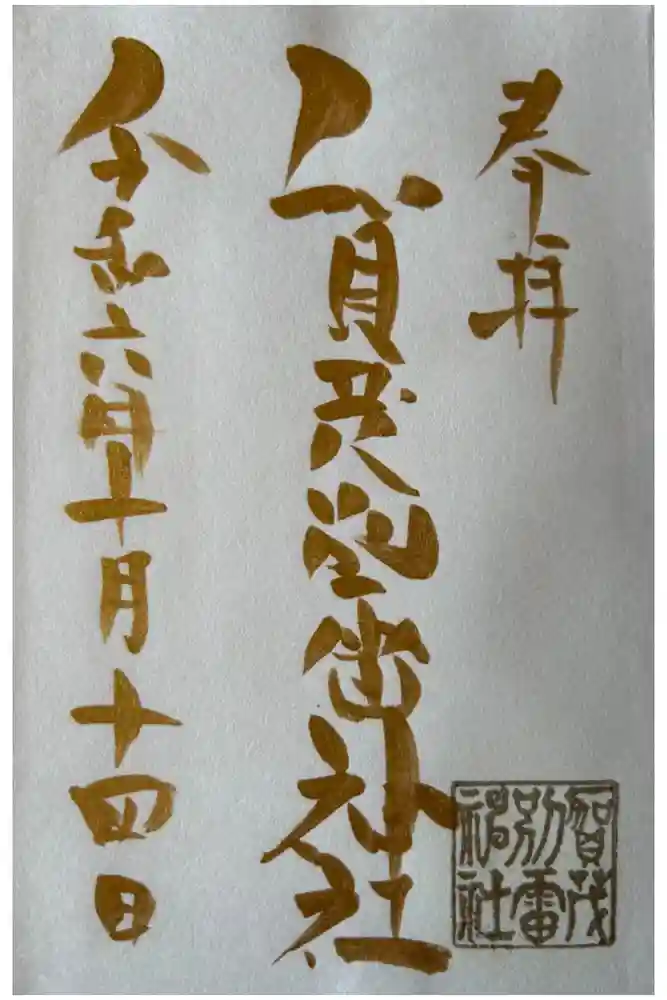 奉拝
賀茂別雷神社
令和六年十月十四日
賀茂
別雷
神社